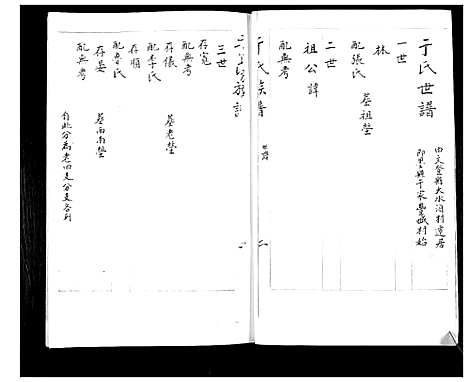 于氏世譜
由文登縣大水泊村遷居
即墨縣于家疃城村始
一世
林
配張氏 墓祖塋
二世
祖公諱
配無考
于氏族譜 世譜 一
三世
存寬
配無考
存儀 墓老塋
配李氏
存順
配魯氏 墓西南塋
存晏
自此分為老四支分支各列